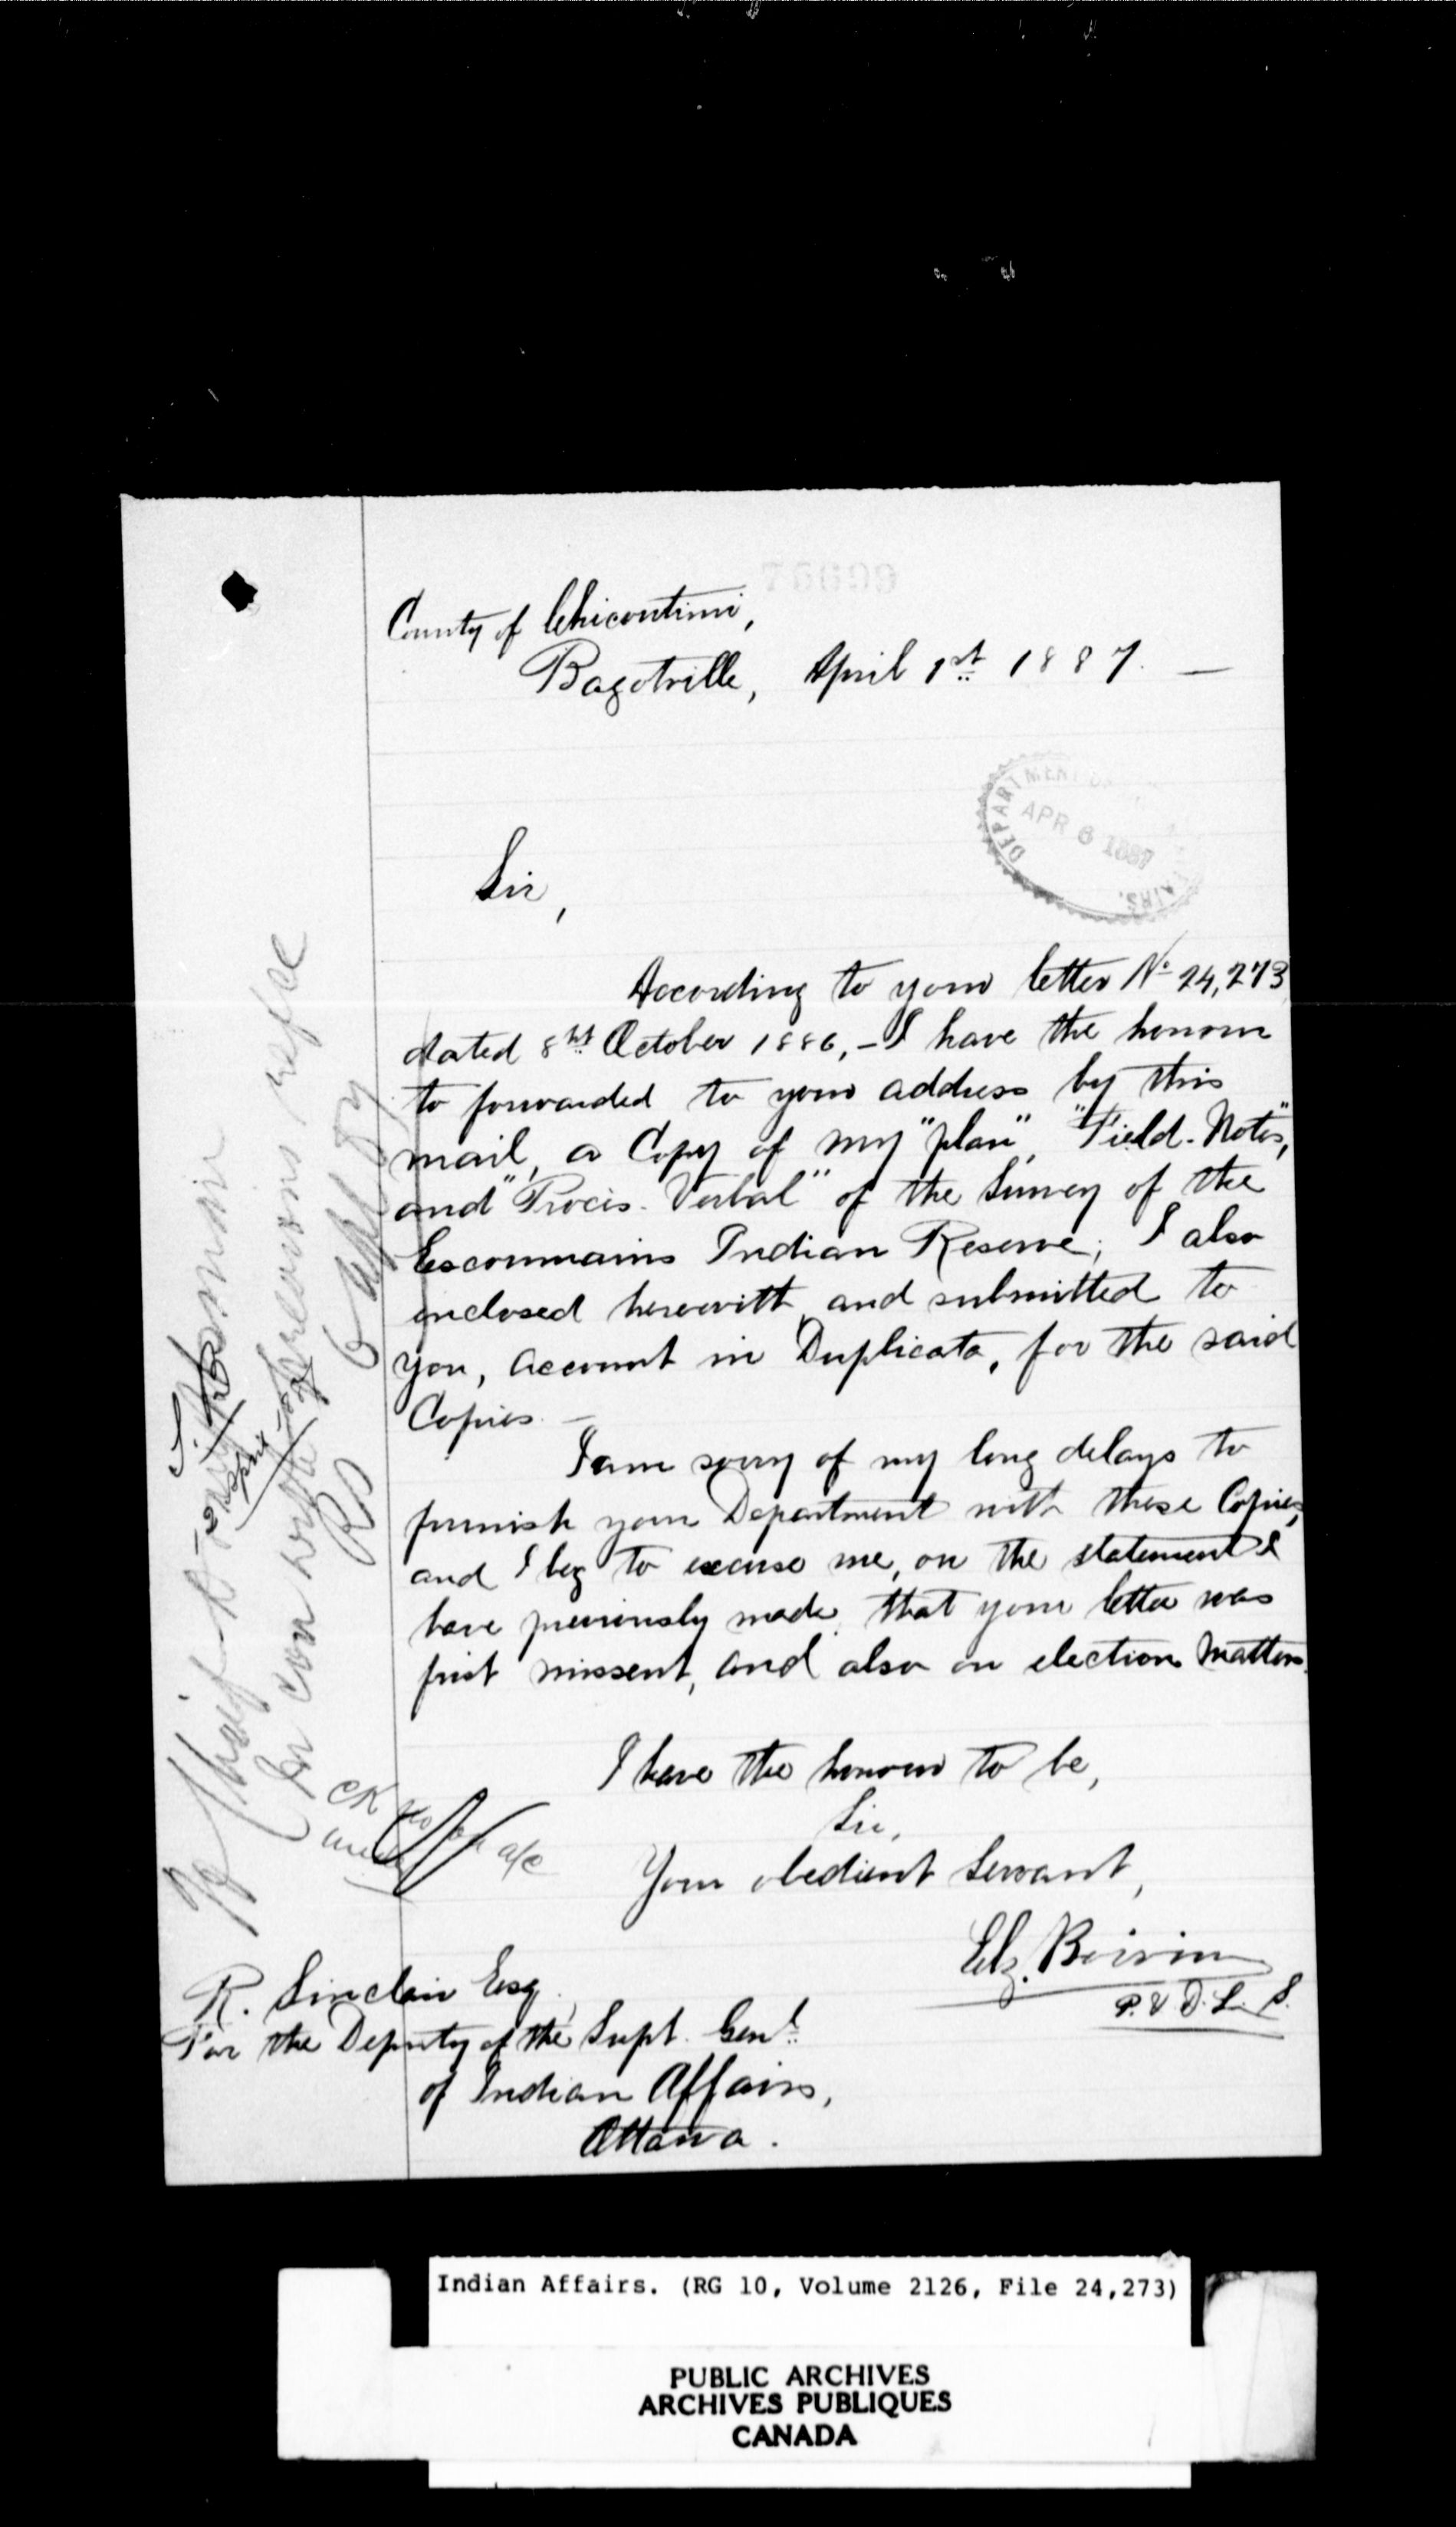 75699
County of Chicoutimi,
Bagotville, April 1st 1887. —
DEPARTMENT OF
APR 6 1887
Sir,
According to your letter No 24,273
dated 8th October 1886, - I have the honour
to forwarded to your address by this
mail, a Copy of my "plan", "Field-Notes",
and "Procis-Verbal" of the Survey of the
Escoumains Indian Reserve; I also
enclosed herewith, and submitted to
you, account in Duplicata, for the said
Copies. —
I am sorry of my long delays to
furnish your Department with these Copies,
and I beg to excuse me, on the statement I
have previously made, that your letter was
first missent, and also on election matters.
I have the honour to be,
Sir,
Your obedient Servant,
Elz. Boivin
P. & D. L. S.
R. Sinclair Esq.
For the Deputy of the Supt. Genl.
of Indian Affairs,
Ottawa.
Indian Affairs. (RG 10, Volume 2126, File 24,273)
PUBLIC ARCHIVES
ARCHIVES PUBLIQUES
CANADA